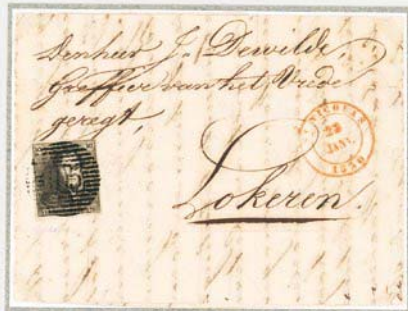 Denheer J. Dewilde,
Griffier van het Vrede
geregt,
Lokeren.
ST NICOLAS
22
JANV.
1850